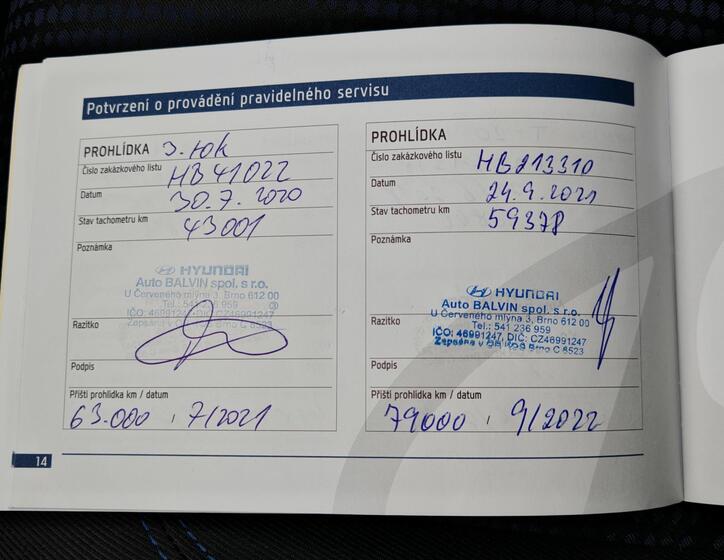 Potvrzení o provádění pravidelného servisu
PROHLÍDKA 3. rok
Číslo zakázkového listu HB41022
Datum 30.7.2020
Stav tachometru km 43001
Poznámka
HYUNDAI
Auto BALVIN spol. s r.o.
U Červeného mlýna 3, Brno 612 00
Tel.: 541 236 959
IČO: 46991247, DIČ: CZ46991247
Zapsána v OR KOS Brno C 6523
Razítko
Podpis
Příští prohlídka km / datum
63.000 / 7/2021
PROHLÍDKA
Číslo zakázkového listu HB213310
Datum 24.9.2021
Stav tachometru km 59378
Poznámka
HYUNDAI
Auto BALVIN spol. s r.o.
U Červeného mlýna 3, Brno 612 00
Tel.: 541 236 959
IČO: 46991247, DIČ: CZ46991247
Zapsána v OR KOS Brno C 6523
Razítko
Podpis
Příští prohlídka km / datum
79000 / 9/2022
14